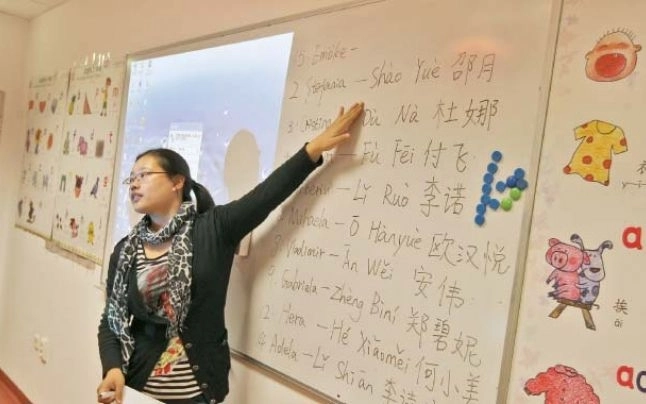 15. Emőke –
2. Stefania – Shào Yuè 邵月
Dù Nà 杜娜
– Fù Fēi 付飞
– Lǐ Ruò 李诺
Mihaela – Ō Hànyuè 欧汉悦
Vladimir – Ān Wěi 安伟
Gabriela – Zhèng Bìní 郑碧妮
Hera – Hé Xiǎoměi 何小美
Adela – Lǐ Shīān 李诗
挨
āi
a